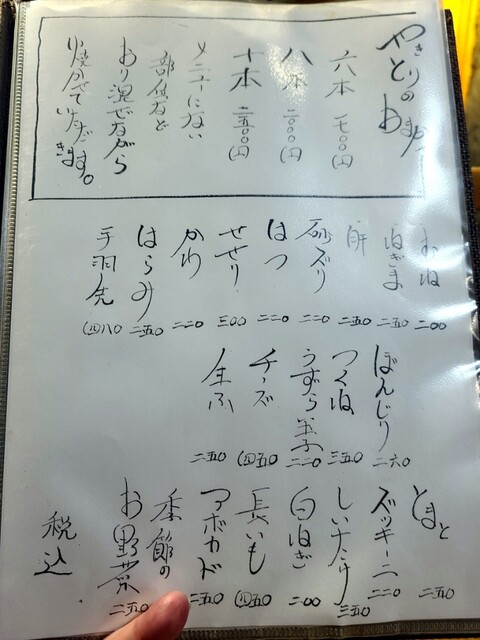 やきとりのおまかせ
六本 一七〇〇円
八本 二二〇〇円
十本 二五〇〇円
メニューにない
部位など
おり混ぜながら
焼かせていただきます。
むね 二〇〇
ねぎま 二五〇
肝 二五〇
砂ズリ 二二〇
はつ 二二〇
せせり 三〇〇
かわ 二二〇
はらみ 二五〇
手羽先 (四)八〇
ぼんじり 二六〇
つくね 三五〇
うずら玉子 二二〇
チーズ (四)五〇
生ふ 二五〇
とまと 二五〇
ズッキーニ 二二〇
しいたけ 三五〇
白ねぎ 二〇〇
長いも (四)五〇
アボカド 二五〇
季節の
お野菜 二五〇
税込